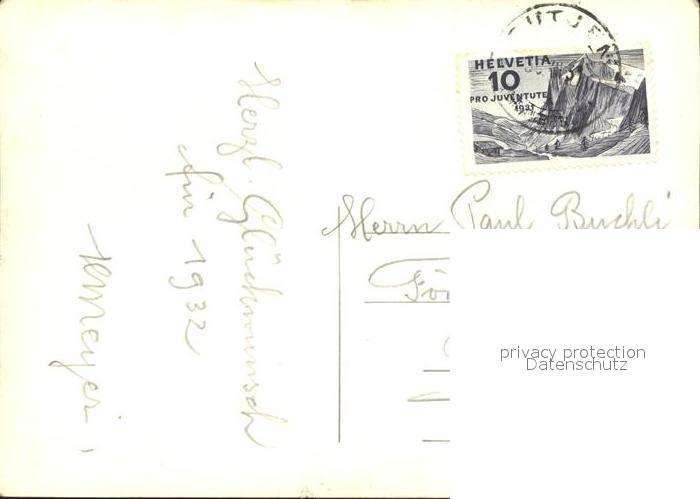 HELVETIA
10
PRO JUVENTUTE
1931
Herzl. Glückwünsch
für 1932
Herrn Paul Buchli
privacy protection
Datenschutz